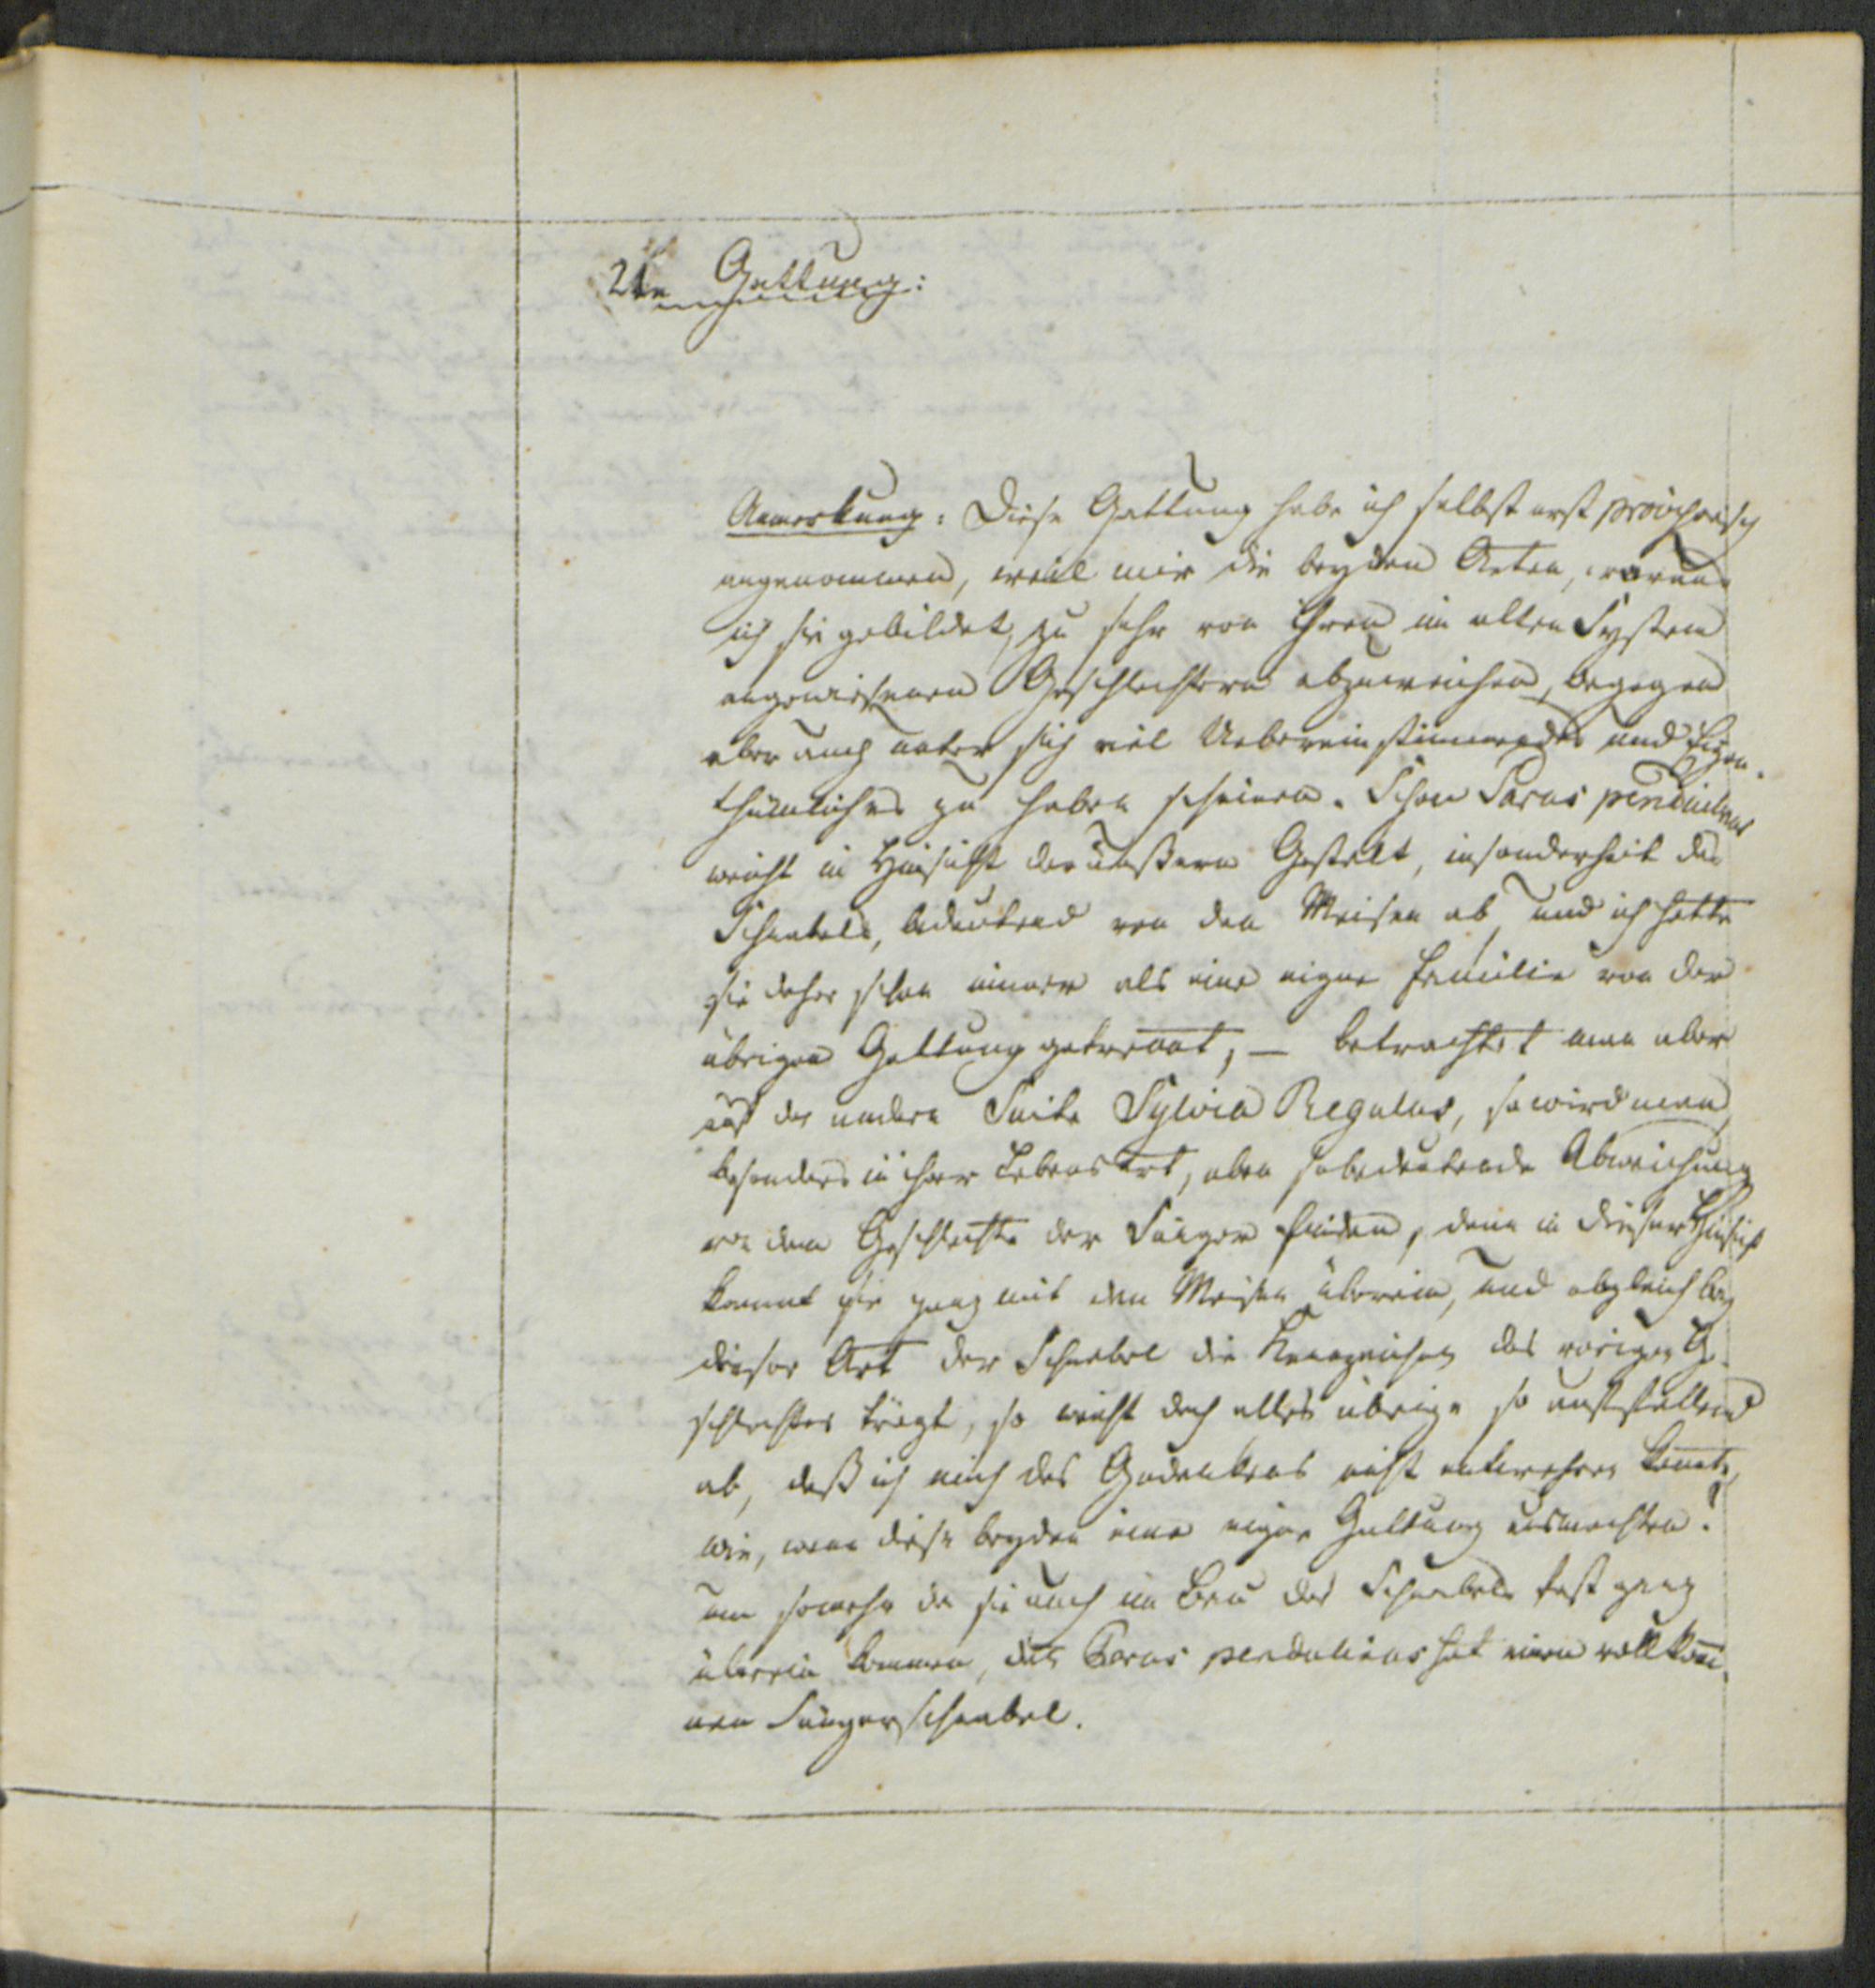 2te Gattung:
Anmerkung: Diese Gattung habe ich selbst erst provisorisch
angenommen, weil mir die beyden Arten, woraus
ich sie gebildet, zu sehr von ihren im alten System
angewiesenen Geschlechtern abzuweichen, dagegen
aber auch unter sich viel Uebereinstimmendes und Eigen-
thümliches zu haben scheinen. Schon Parus pendulinus
weicht in Hinsicht der äußern Gestalt, insonderheit des
Schnabels, bedeutend von den Meisen ab, und ich hatte
sie daher schon immer als eine eigne Familie von der
übrigen Gattung getrennt, — betrachtet man aber
auf der andern Seite Sylvia Regulus, so wird man,
besonders in ihrer Lebensart, eben so bedeutende Abweichung
von dem Geschlechte der Sänger finden, denn in dieser Hinsicht
kommt sie ganz mit den Meisen überein, und obgleich bey
dieser Art der Schnabel die Kennzeichen des vorigen Ge-
schlechtes trägt, so weicht doch alles übrige so auffallend
ab, daß ich mich des Gedankens nicht entwehren konnte,
wie, wenn diese beyden eine eigne Gattung ausmachten!
um somehr da sie auch im Bau des Schnabels fast ganz
überein kommen, denn Parus pendulinus hat einen vollkom-
nen Sängerschnabel.